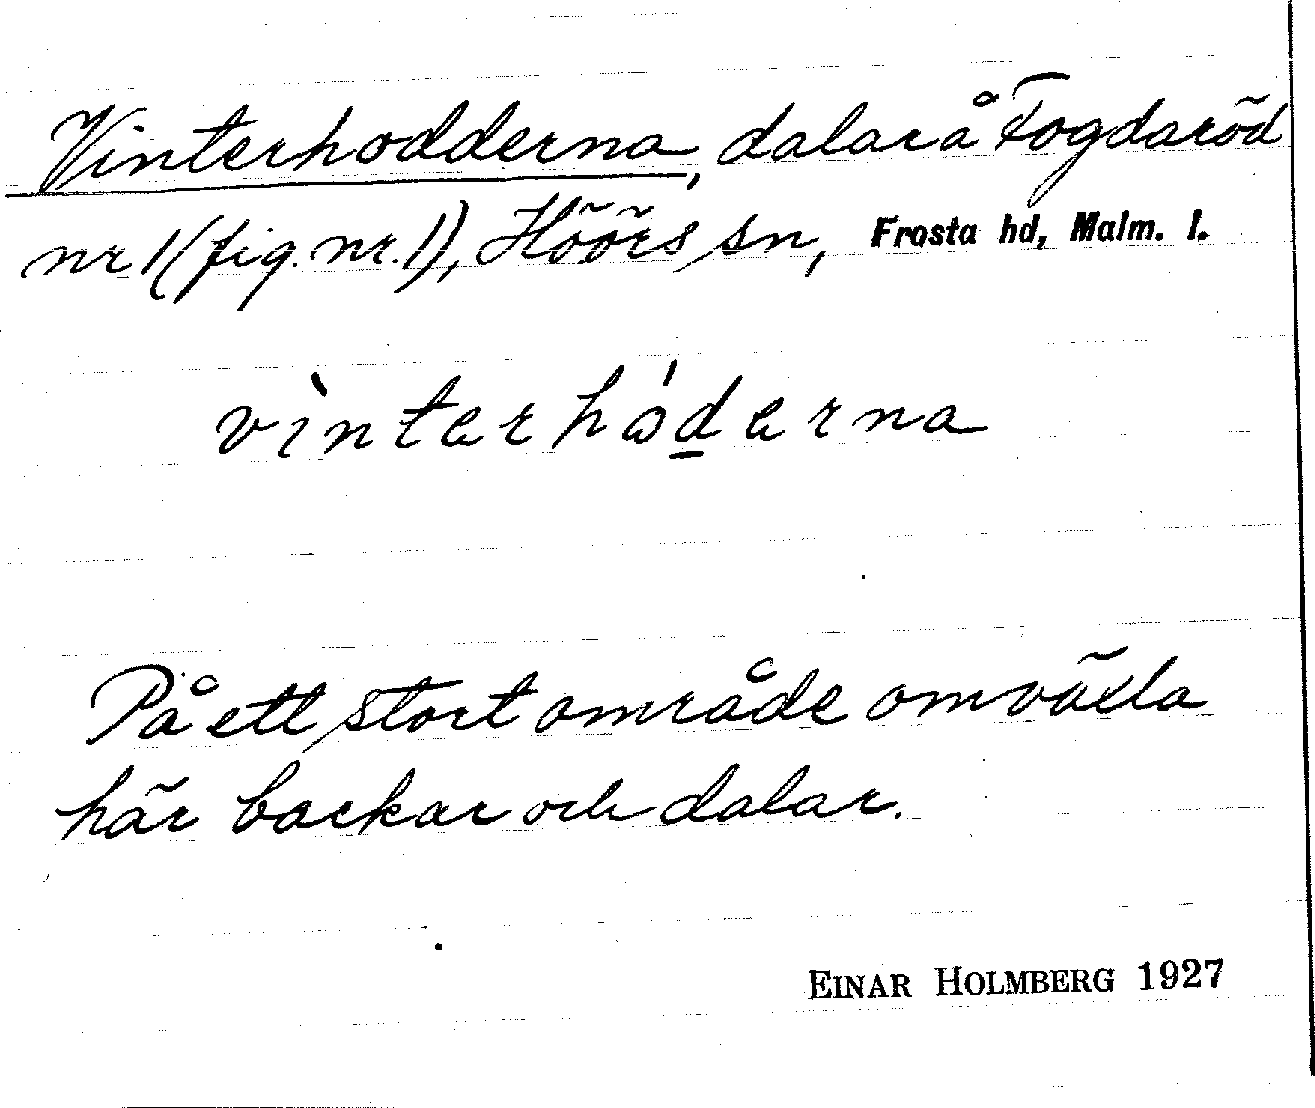 Vinterhodderna, dalar å Fogdaröd
nr 1 (fig. nr. 1), Höörs sn, Frosta hd, Malm. l.
vìnterhód̲erna
På ett stort område omväxla
här backar och dalar.
EINAR HOLMBERG 1927